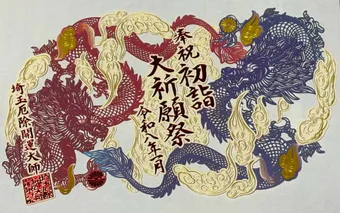 奉祝
初詣
大祈願祭
令和八年一月
埼玉厄除開運大師